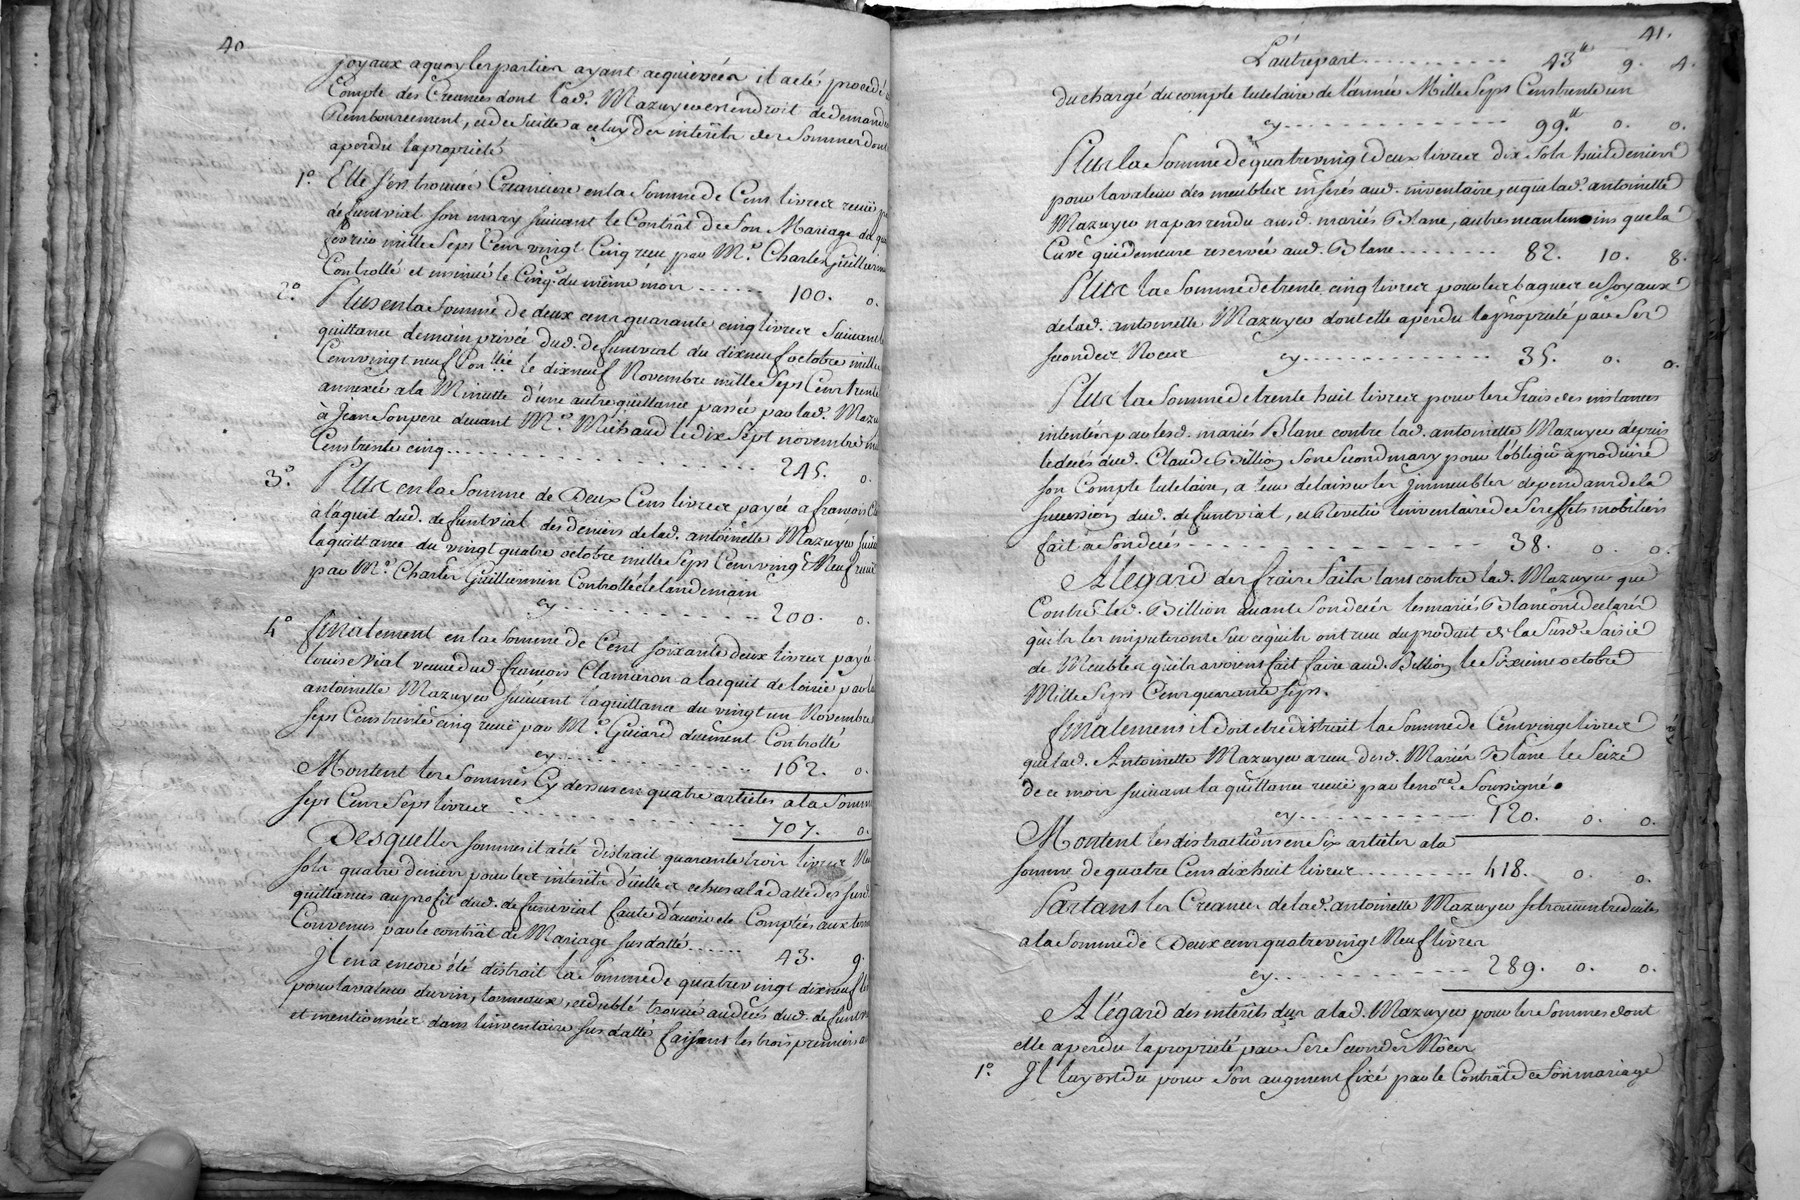 40
joyaux aquoy les parties ayant acquiescées il a eté procedé
Compte des Creances dont lad. Mazuyer est en droit de demander
Remboursement, et de suitte a celuy des interêts des Sommes dont
a perdu la propriété
1.° Elle s'est trouvée Creanciere en la Somme de Cent livres receü p
defunt vial son mary suivant le Contrât de Son Mariage du
fevrier mille Sept Cent vingt Cinq receu par M.e Charles Guillermin
Controllé et insinué le Cinq. du même mois ...... 100. 0.
2.° Plus en la Somme de deux cent quarante cinq livres Suivant
quittance de main privée dud. defunt vial du dix neuf octobre mille
Cent vingt neuf Con.llée le dix neuf Novembre mille Sept Cent trente
annexée a la Minutte d'une autre quittance passée par lad. Mazu
à Jean Son pere devant M.e Michaud le dix Sept novembre m
Cent trente cinq ...... 245. 0.
3.° Plus en la Somme de Deux Cent livres payée a françois
a laquit dud. defunt vial des deniers de lad. antoinette Mazuyer suiv
la quittance du vingt quatre octobre mille Sept Cent vingt Neuf receü
par M.e Charles Guillermin Controllée le landemain
cy ...... 200. 0.
4.° finalement en la Somme de Cent soixante deux livres payé
louise Vial veuve dud. françois Clameron a lacquit de loirie par la
antoinette Mazuyer suivant la quittance du vingt un Novembre
Sept Cent trente cinq receü par M.e Guiard duëment Controllé
cy ...... 162. 0.
Montent les Sommes Cy dessus en quatre articles a la Somme
Sept Cent Sept livres ...... 707. 0.
Desquelles sommes il a été distrait quarante trois livres Neu
sols quatre deniers pour les interêts d'icelles echus a la datte des susd.
quittances au profit dud. defunt vial faute d'avoir eté Comptées aux term
Convenus par le contrât de Mariage sus datté ...... 43. 9.
Il en a encore été distrait la Somme de quatre vingt dix neuf li
pour la valeur du vin, tonneaux, et du blé trouvé au decés dud. defunt
et mentionnée dans linventaire sus datté faisant les trois premiers a
41.
L'autre part ...... 43.# 9. 4.
du chargé du compte tutelaire de l'année Mille Sept Cent trente un
cy ...... 99.# 0. 0.
Plus la Somme de quatre vingt deux livres dix Sols huit deniers
pour la valeur des meubles inserés aud. inventaire, et que lad. antoinette
Mazuyer n'a pas rendu ausd. mariés Blanc, autres neantmoins que la
Cuve qui demeure reservée aud. Blanc ...... 82. 10. 8.
Plus la Somme de trente cinq livres pour les bagues et Joyaux
de lad. antoinette Mazuyer dont elle a perdu la propriété par Ses
secondes Noces cy ...... 35. 0. 0.
Plus la Somme de trente huit livres pour les Frais des instances
intentées par lesd. mariés Blanc contre lad. antoinette Mazuyer depuis
le decés dud. Claude Billion Son Second mary pour l'obliger a produire
son Compte tutelaire, a leur delaisser les Jmmeubles dependants de la
succession dud. defunt vial, et Revetir linventaire de Ses effets mobiliers
fait a Son decés ...... 38. 0. 0.
A legard des frais faits tant contre lad. Mazuyer que
Contre led. Billion avant Son decés lesmariés Blanc ont declarés
qu'ils les imputeront Sur ce qu'ils ont receu du produit de la Susd. Saisie
de Meubles qu'ils avoient fait faire aud. Billion le Sixieme octobre
Mille Sept Cent quarante Sept.
finalement il doit etre distrait la Somme de Cent vingt livres
que lad. Antoinette Mazuyer a receu desd. Mariés Blanc le Seize
de ce mois suivant la quittance receü par le no.re Soussigné.
cy ...... 120. 0. 0.
Montent les distractions en Six articles a la
somme de quatre Cent dix huit livres ...... 418. 0. 0.
Partant les Creances de lad. antoinette Mazuyer se trouvent reduites
a la Somme de Deux cent quatre vingt Neuf livres
cy ...... 289. 0. 0.
A l'égard des interêts dus a lad. Mazuyer pour les Sommes dont
elle a perdu la propriété par Ses Secondes Nôces
1.° Il luy est du pour Son augment fixé par le Contrât de Son mariage